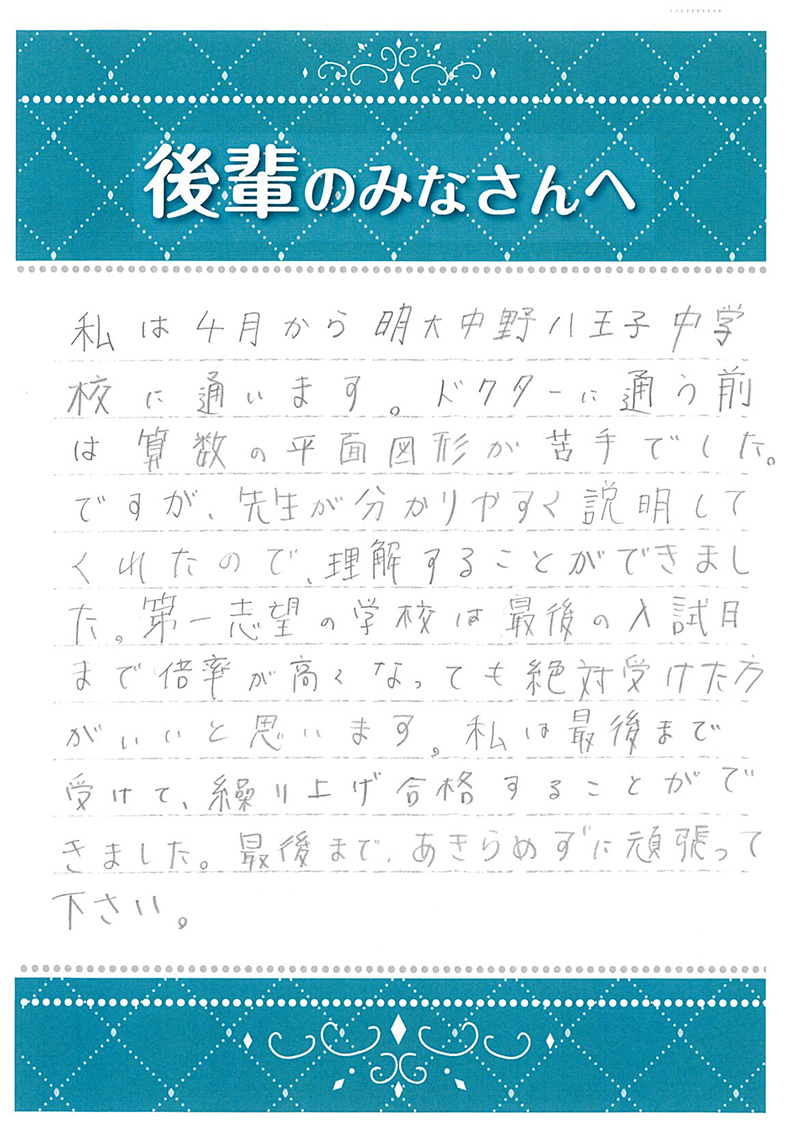 後輩のみなさんへ
私は4月から明大中野八王子中学
校に通います。ドクターに通う前
は算数の平面図形が苦手でした。
ですが、先生が分かりやすく説明して
くれたので、理解することができまし
た。第一志望の学校は最後の入試日
まで倍率が高くなっても絶対受けた方
がいいと思います。私は最後まで
受けて、繰り上げ合格することがで
きました。最後まで、あきらめずに頑張って
下さい。